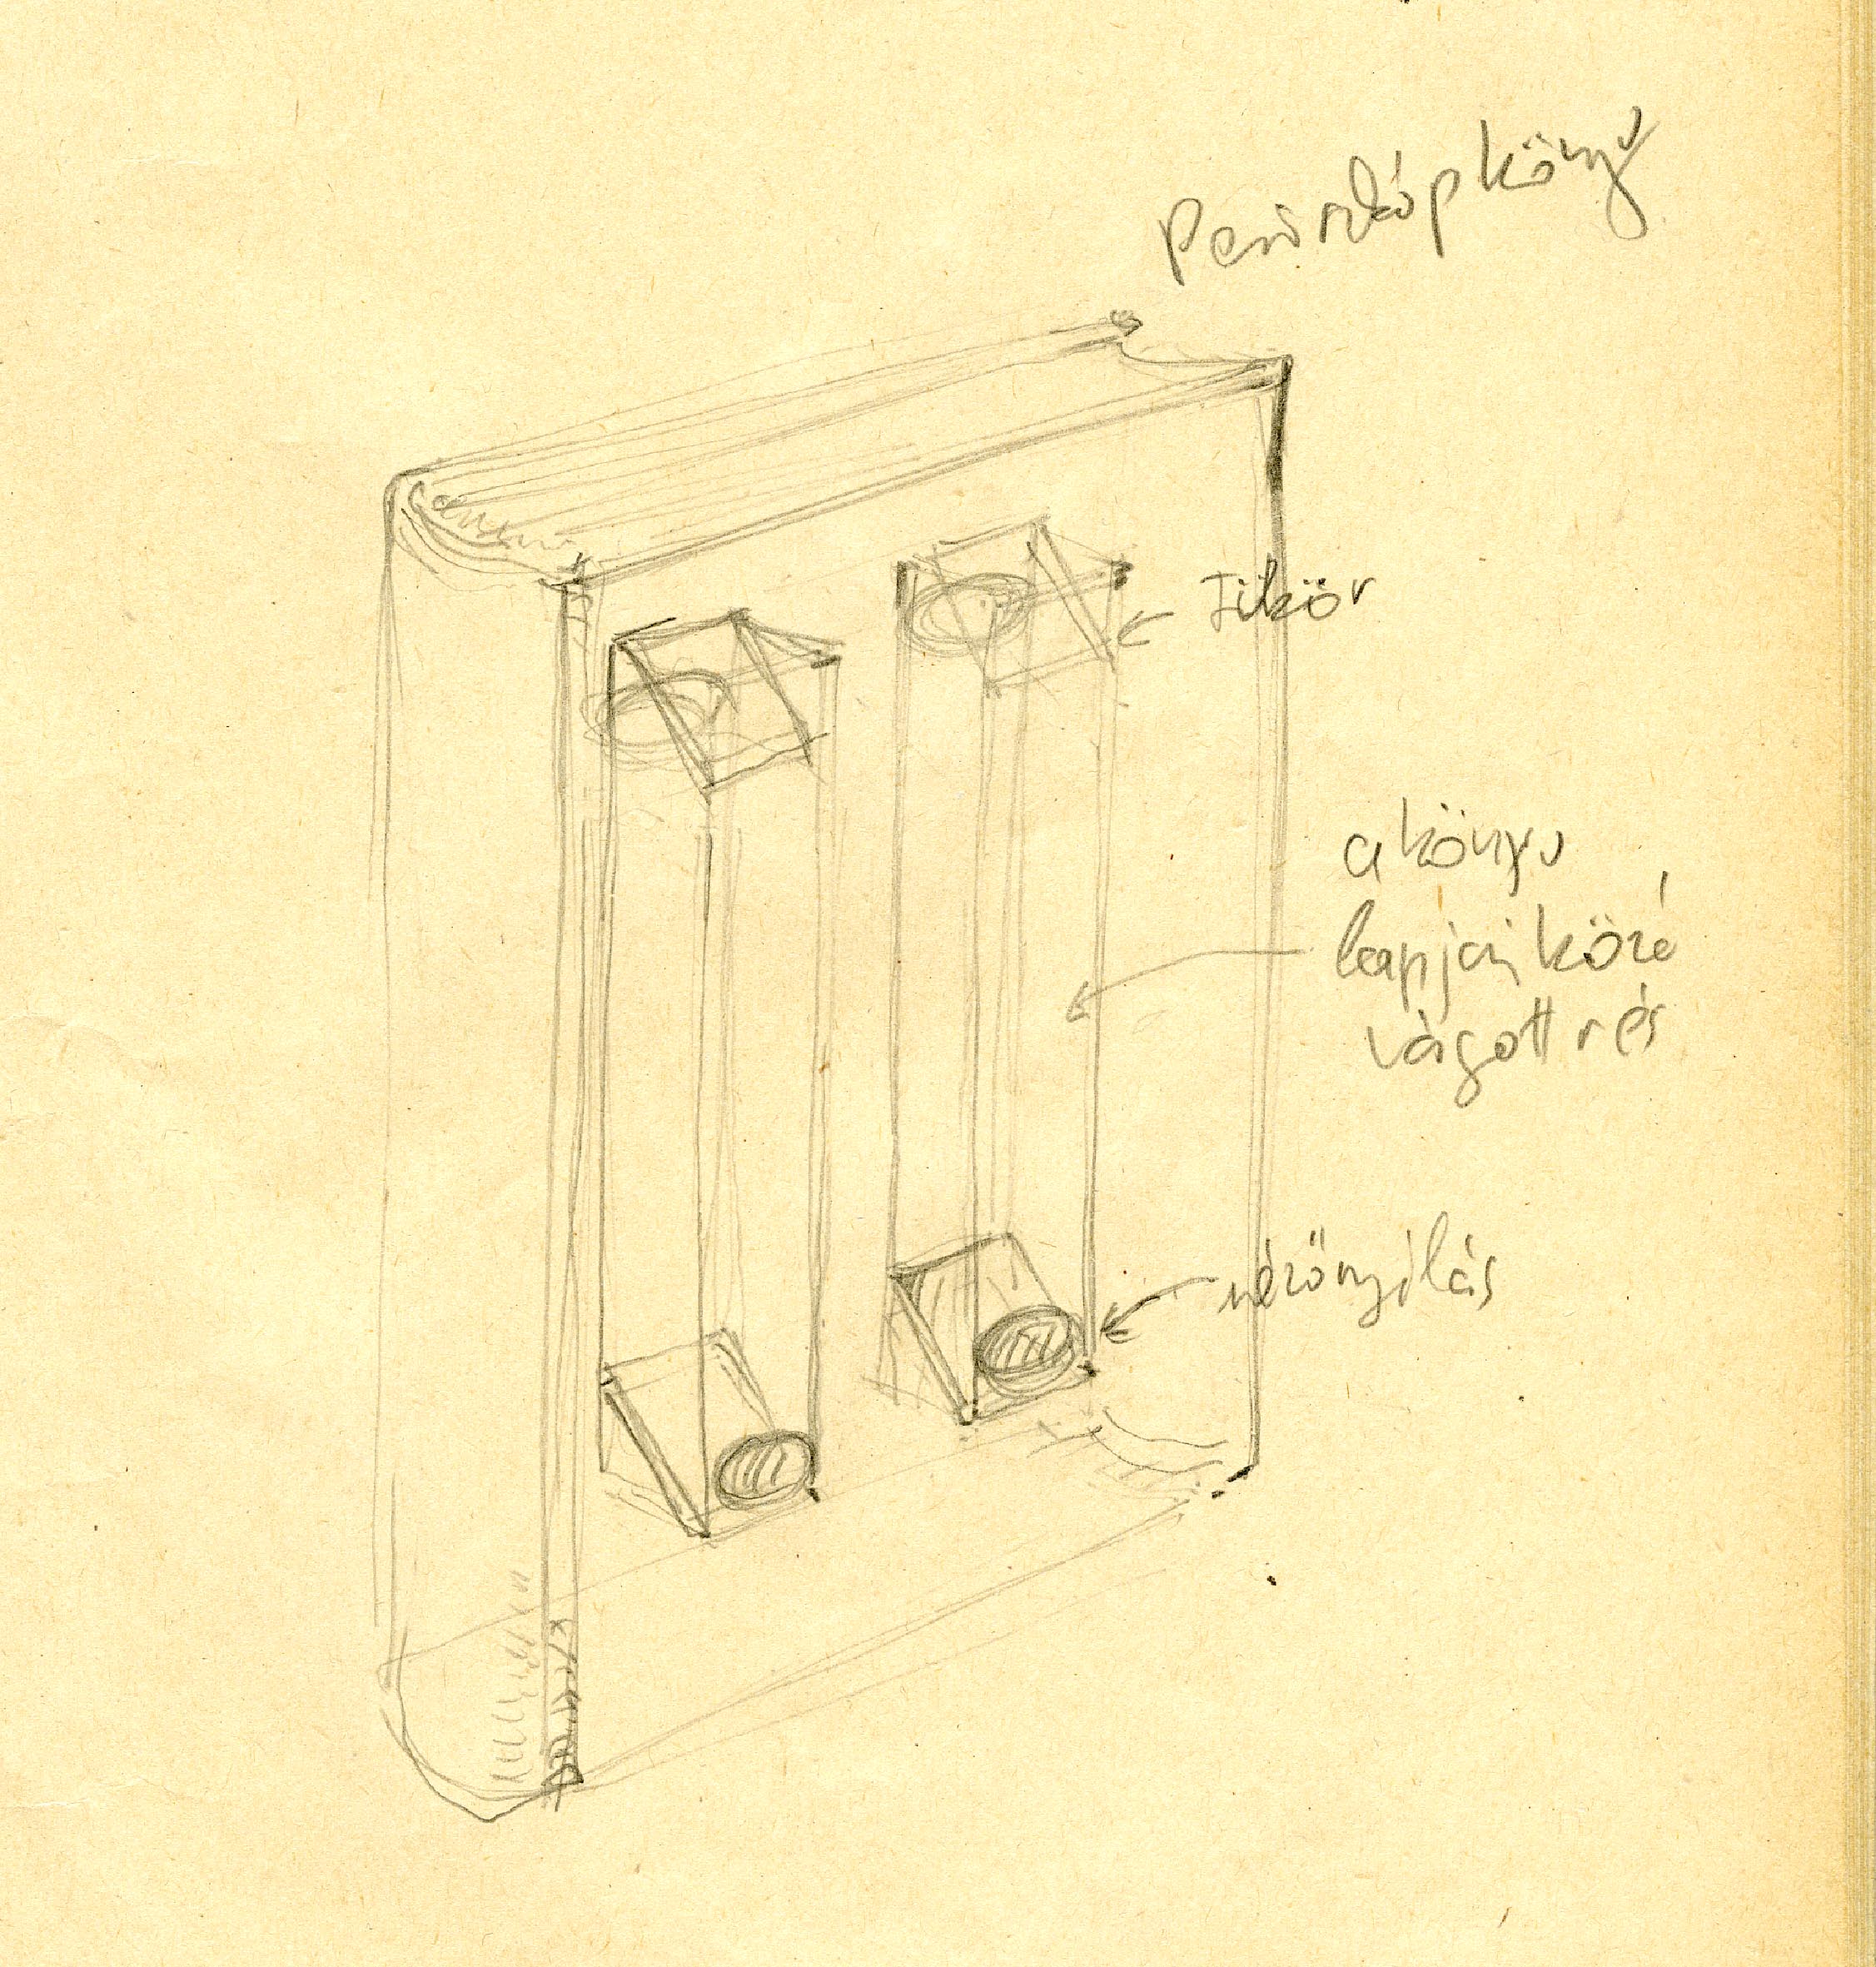 Periszkópkönyv
Tükör
a könyv
lapjai közé
vágott rés
nézőnyílás